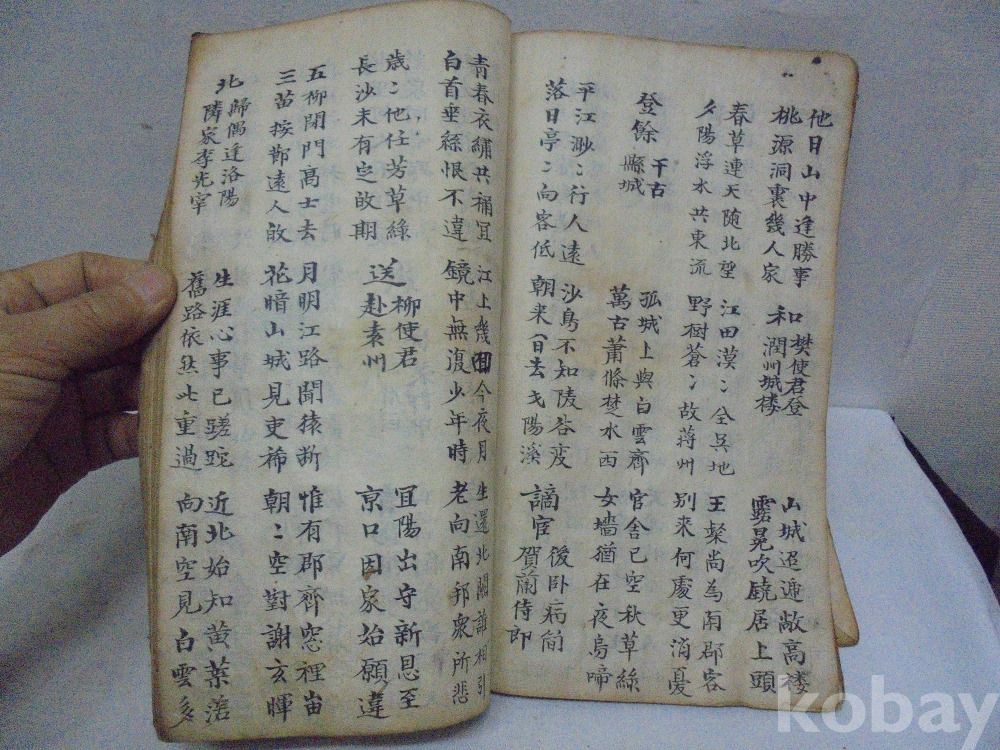 他日山中逢勝事
桃源洞裏幾人家
和樊使君登
潤州城楼
山城迢遞敞高楼
露冕吹鐃居上頭
春草連天随北望
夕陽浮水共東流
江田漠〻全吳地
野樹蒼〻故蒋州
王粲尚為南郡客
別来何處更消憂
登餘干古
縣城
孤城上與白雲齊
萬古蕭條楚水西
官舍已空秋草綠
女墻猶在夜烏啼
平江渺〻行人遠
落日亭〻向客低
沙鳥不知陵谷变
朝来日去弋陽溪
謫官後卧病簡
賀蘭侍郎
青春衣繡共稱宜
白首垂絲恨不違
江上幾回今夜月
鏡中無復少年時
生還北闕誰相引
老向南邦衆所悲
歲〻他任芳草綠
長沙未有定故期
送柳使君
赴袁州
宜陽出守新恩至
京口因家始願違
五柳閉門高士去
三苗按節遠人故
月明江路聞猿断
花暗山城見吏稀
惟有郡齊窓裡岫
朝〻空對謝玄暉
北歸偶逢洛陽
隣家李光宰
生涯心事已蹉跎
舊路依然此重過
近北始知黄葉落
向南空見白雲多
kobay